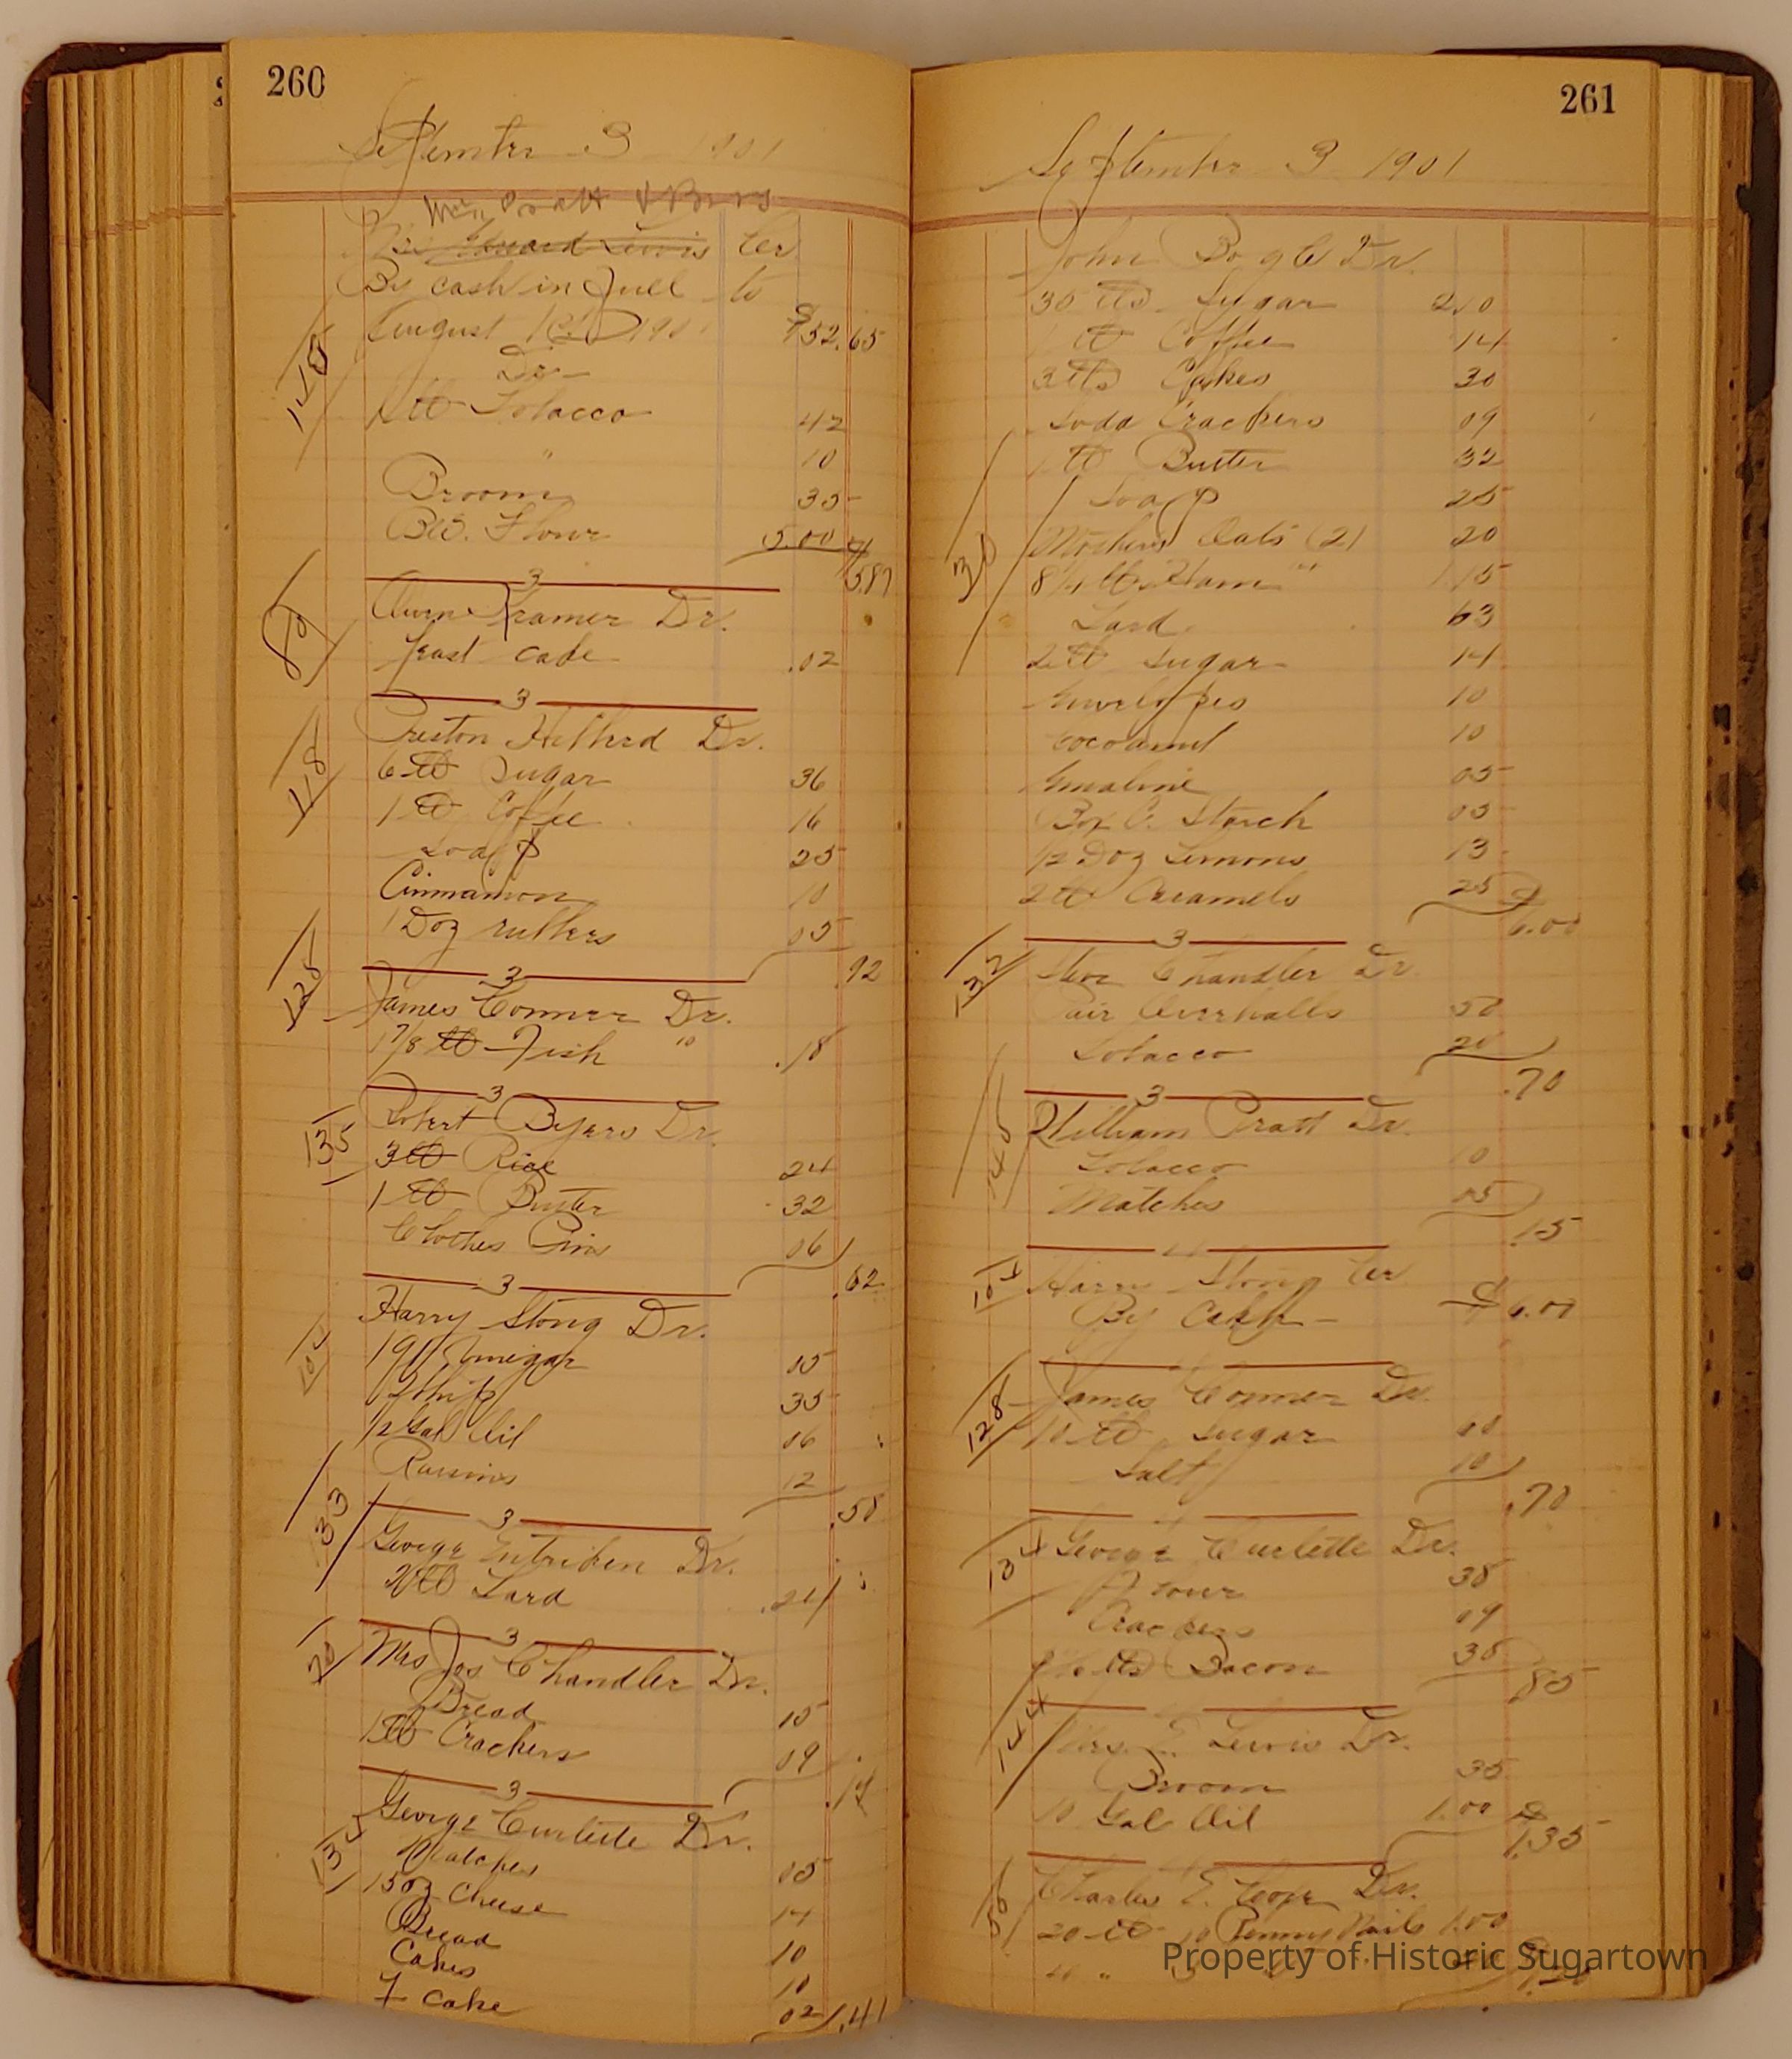 260
September 3 1901
Wm Pratt & Bros
Mrs Edward Lewis Cr
By cash in full to
August 1901 $52.65
Dr
1 lb Tobacco 42
" 10
Broom 35
Bbl. Flour 5.00
5.87
3
Kramer Dr.
Yeast cake .02
3
Preston Dr.
6 lb Sugar 36
1 lb Coffee 16
Soap 25
Cinnamon 10
1 Doz rubbers 05
.92
3
James Conner Dr.
1 7/8 lb Fish 10 .18
3
Robert Byers Dr.
3 lb Rice 24
1 lb Butter 32
Clothes Pins 06
.62
3
Harry Stong Dr.
Vinegar 05
Whip 35
1/2 Gal Oil 06
Raisins 12
.58
3
George Entriken Dr.
2 lb Lard .24
3
Mrs Jos Chandler Dr.
Bread 05
1 lb Crackers 09
.14
3
George Curlette Dr.
Matches 05
15 oz Cheese 14
Bread 10
Cakes 10
Y cake 02 .41
118
89
118
128
135
104
133
70
134
261
September 3 1901
John Bogle Dr.
35 lbs Sugar 2.10
1 lb Coffee 14
3 lbs Cakes 30
Soda Crackers 09
1 lb Butter 32
Soap 25
Mothers Oats (2) 20
8 1/4 lb Ham 1.15
Lard 63
2 lb Sugar 14
Envelopes 10
Cocoanut 10
05
Box C. Starch 05
1/2 Doz Lemons 13
2 lb Caramels 25
6.00
3
Chandler Dr
Pair Overhalls 50
Tobacco 20
.70
3
William Pratt Dr.
Tobacco 10
Matches 05
.15
4
Harry Stong Cr
By Cash $6.00
James Conner Dr.
10 lb Sugar 60
Salt 10
.70
4
George Curlette Dr.
Flour 38
Crackers 09
lbs Bacon 38
.85
Mrs. E. Lewis Dr.
Broom 35
10 Gal Oil 1.00
1.35
Charles E. Cope Dr.
20 lb 10 Penny Nails 1.00
30
132
145
104
128
134
144
56
Property of Historic Sugartown